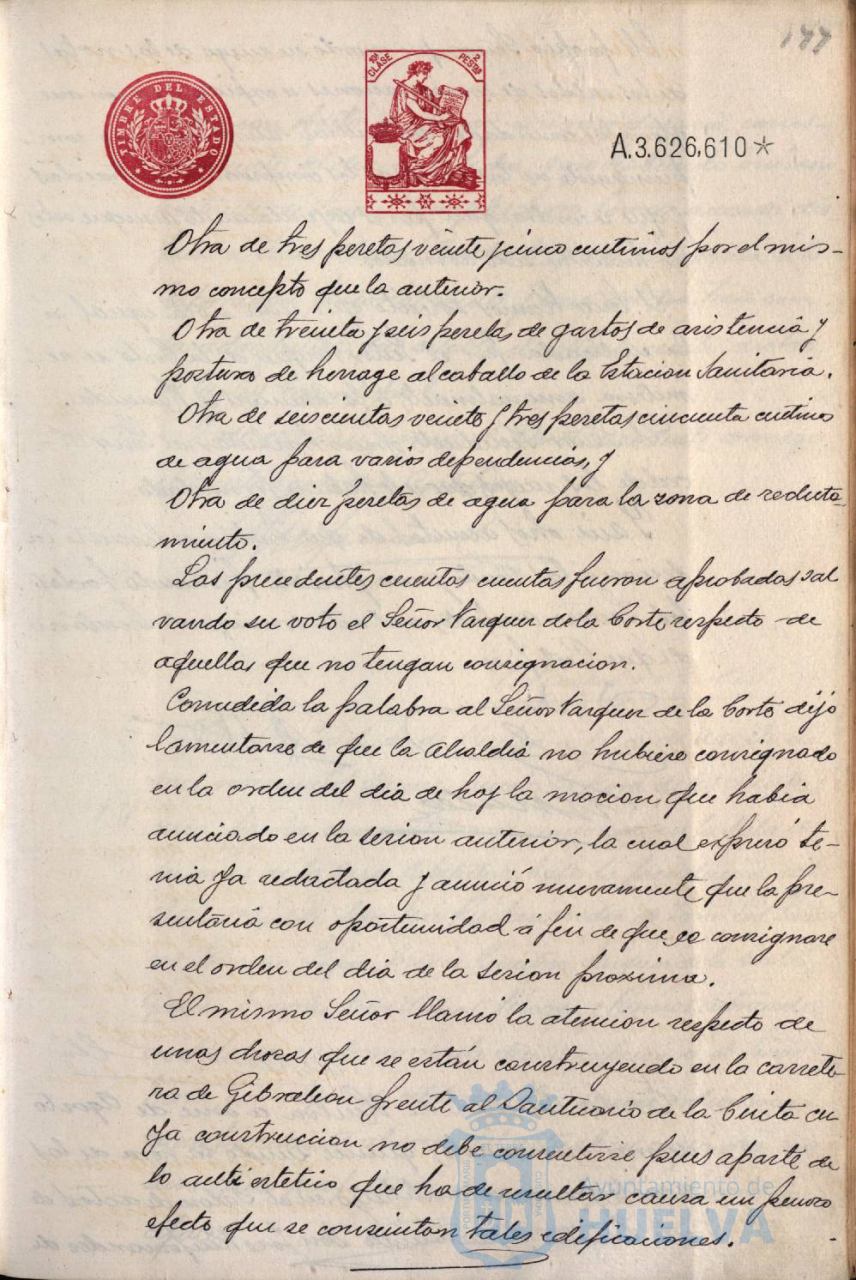 177
TIMBRE DEL ESTADO
10ª CLASE 2 PESTAS
A.3.626,610*
Otra de tres pesetas veinte y cinco centimos por el mis-
mo concepto que la anterior.
Otra de treinta y seis pesetas de gastos de asistencia y
postura de herrage al caballo de la Estacion Sanitaria.
Otra de seiscientas veinte y tres pesetas cincuenta centimos
de agua para varias dependencias, y
Otra de diez pesetas de agua para la zona de recluta-
miento.
Las precedentes cuentas cuentas fueron aprobadas sal
vando su voto el Señor Vazquez de la Corte respecto de
aquellas que no tengan consignacion.
Concedida la palabra al Señor Vazquez de la Corte dijo
lamentarse de que la Alcaldia no hubiese consignado
en la orden del dia de hoy la mocion que habia
anunciado en la sesion anterior, la cual expresó te-
nia ya redactada y anunció nuevamente que la pre-
sentaria con oportunidad á fin de que se consignase
en el orden del dia de la sesion proxima.
El mismo Señor llamó la atencion respecto de
unas chozas que se están construyendo en la carrete-
ra de Gibraleon frente al Santuario de la Cinta cu-
ya construccion no debe consentirse pues aparte de
lo antiestetico que ha de resultar causa un penoso
efecto que se consientan tales edificaciones.
Ayuntamiento de
HUELVA